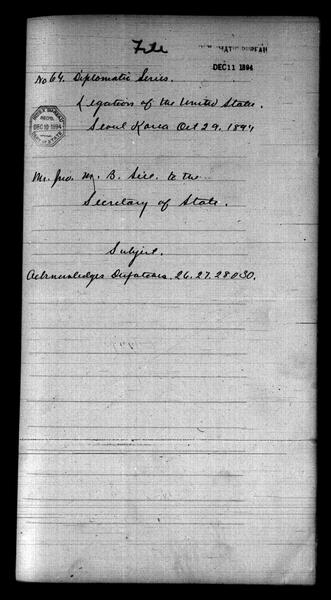 File
DIPLOMATIC BUREAU
DEC 11 1894
No 64. Diplomatic Series.
Legation of the United States.
Seoul Korea Oct 29. 1894
INDEX BUREAU
REC'D.
DEC 10 1894
DEPT. OF STATE
Mr. Jno. M. B. Sill. to the
Secretary of State.
Subject.
Acknowledges Dispatches 26. 27. 28 & 30.